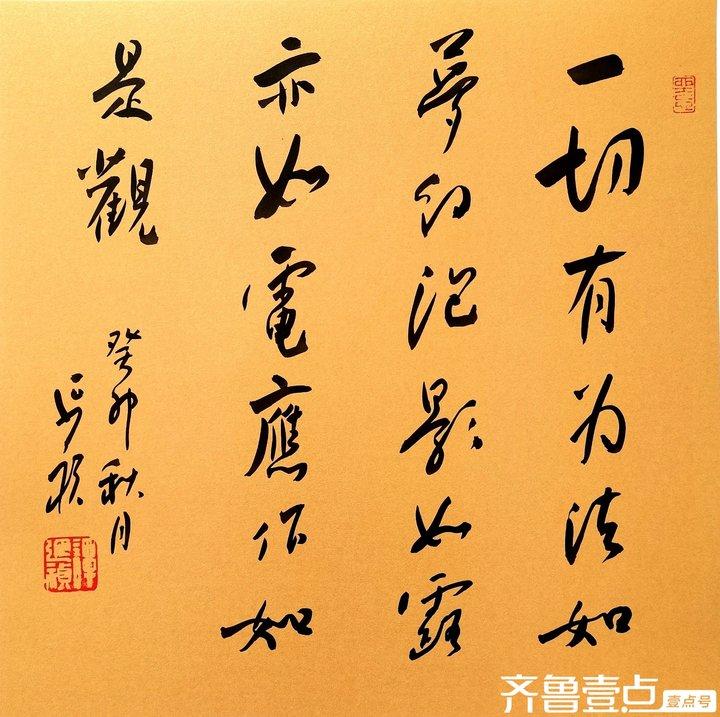 一切有为法如
夢幻泡影如露
亦如電應作如
是觀
癸卯秋月
齐鲁壹点
壹点号